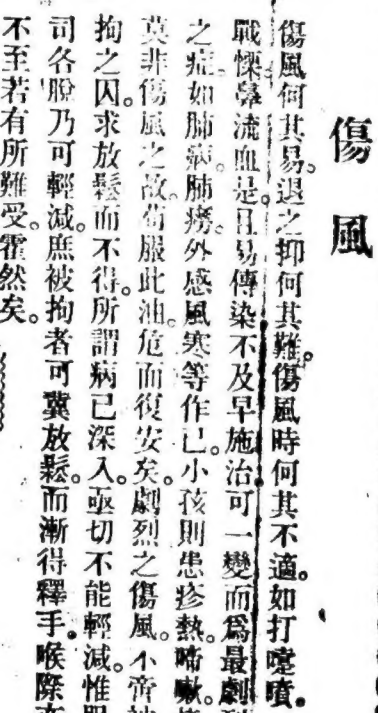 傷風
傷風何其易。退之抑何其難。傷風時何其不適。如打嚏噴。
戰慄鼻流血是。且易傳染不及早施治可一變而爲最劇
之症。如肺病。肺癆。外感風寒等作已。小孩則患疹熱。啼嗽。
莫非傷風之故。苟服此油。危而復安矣。劇烈之傷風。不啻被
拘之囚。求放鬆而不得。所謂病已深入。亟切不能輕減。惟服
司各脫乃可輕減。庶被拘者可冀放鬆。而漸得釋手。喉際
不至若有所難受。霍然矣。